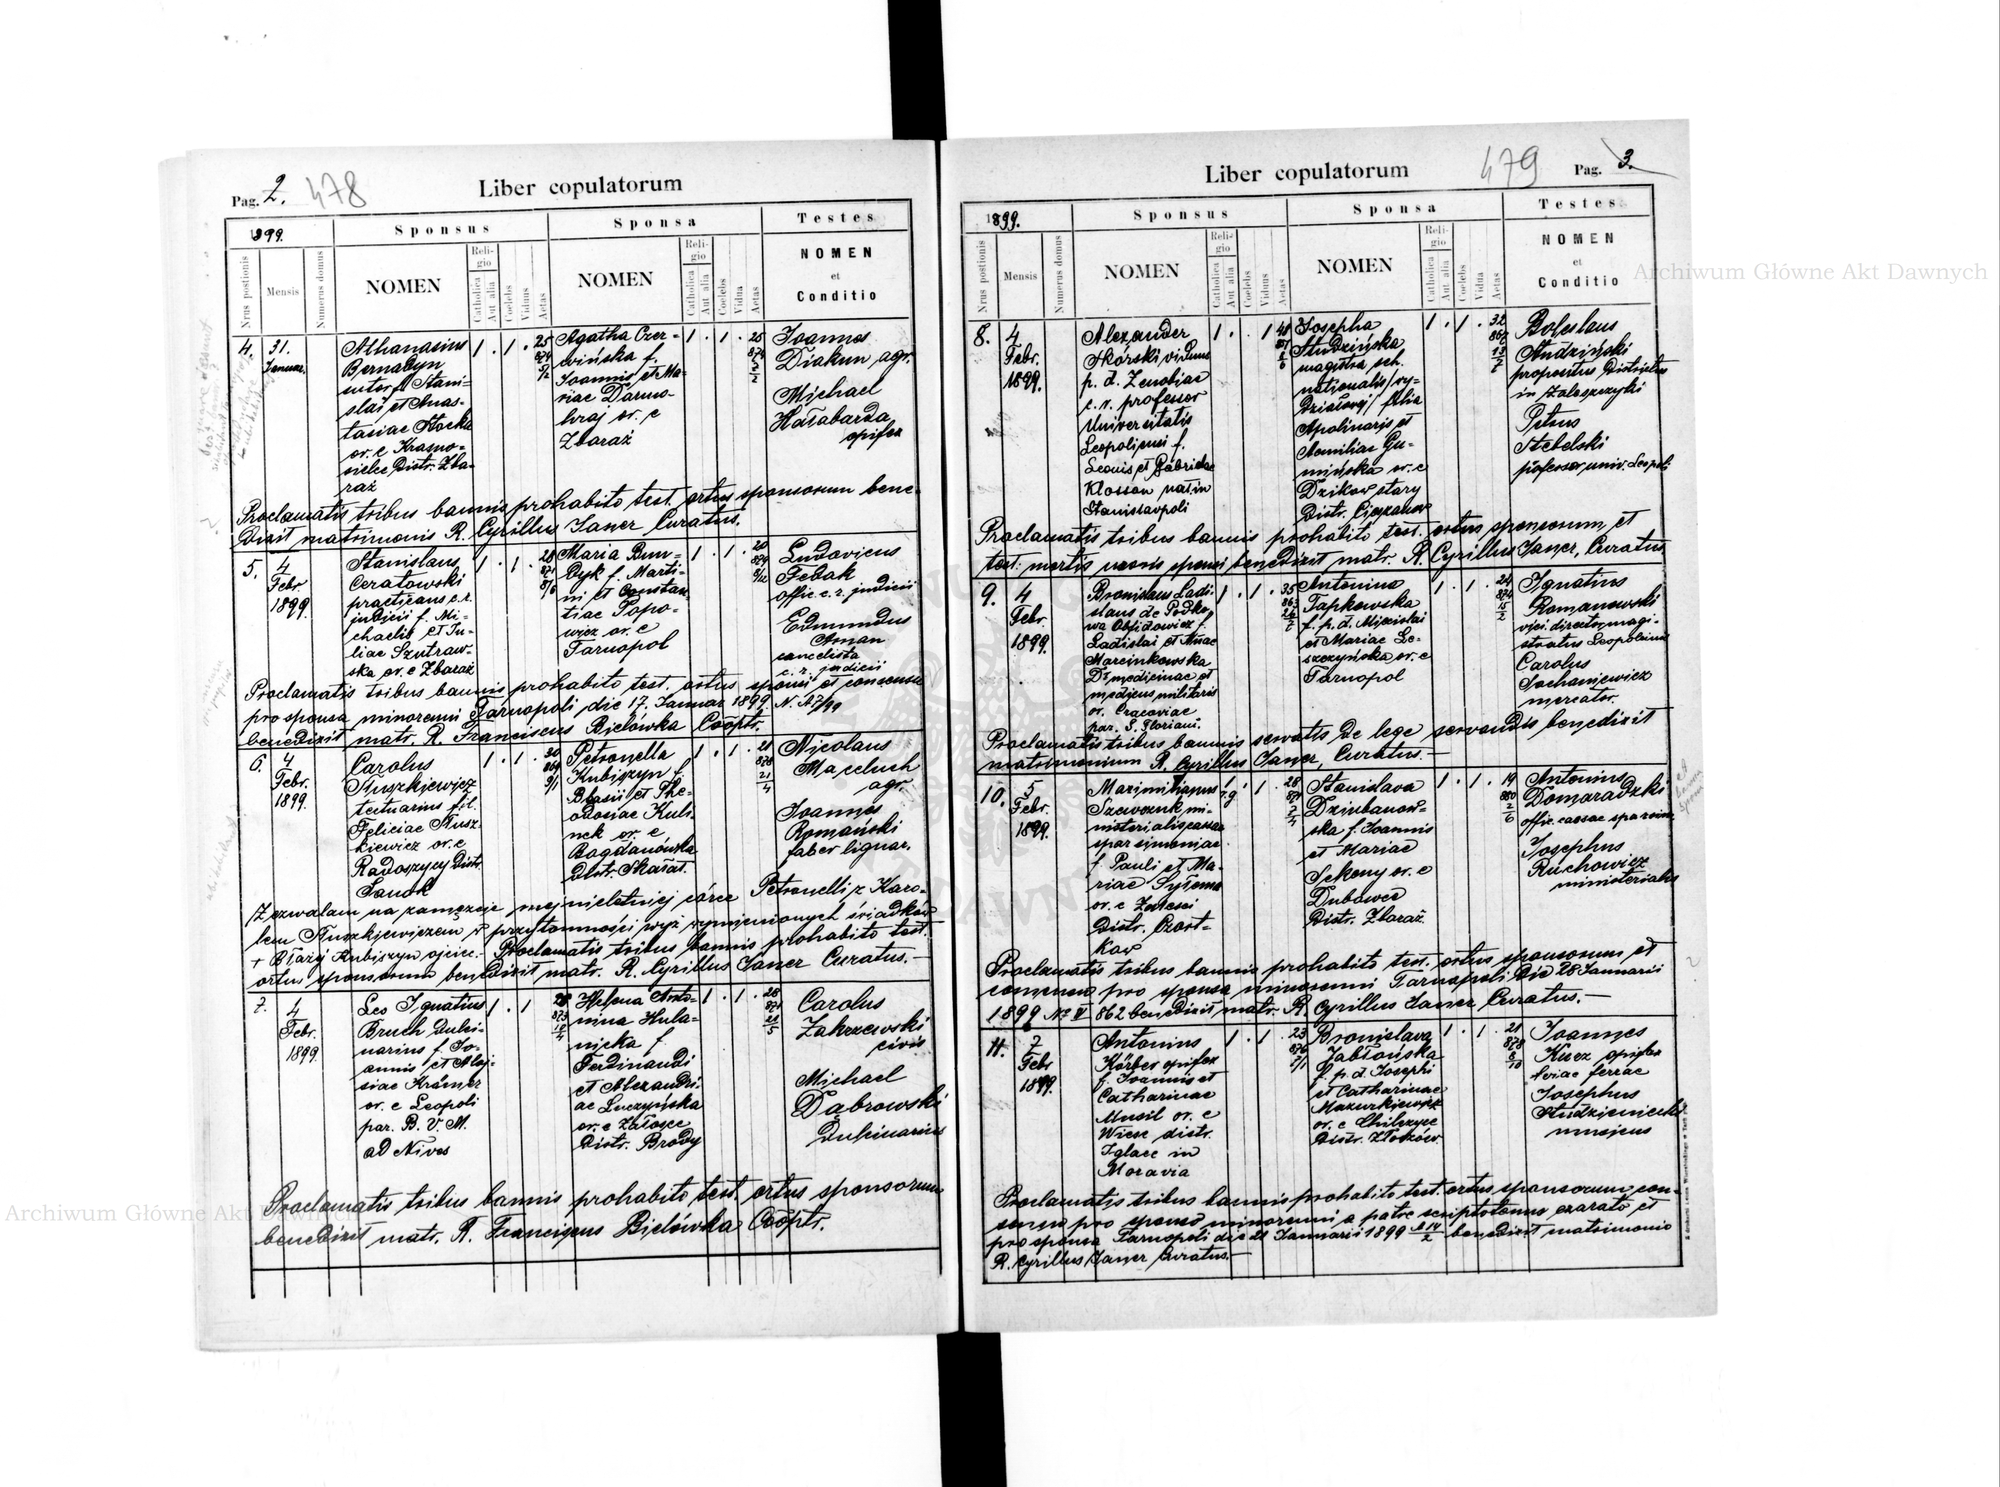 Archiwum Główne Akt Dawnych
Pag. 2. 478
Liber copulatorum
1899.
Sponsus
Sponsa
Testes
Nrus postionis
Mensis
Numerus domus
NOMEN
Religio
Catholica
Aut alia
Coelebs
Viduus
Aetas
NOMEN
Religio
Catholica
Aut alia
Coelebs
Vidua
Aetas
NOMEN
et
Conditio
4. 31. Januar.
Athanasius
Bernadyn
sutor f. Stani-
slai et Anas-
tasiae Stocka
or. e Krasno-
sielce Distr. Zba-
raż
1 . 1 . 25
874
Agatha Czer-
wińska f.
Joannis et Ma-
riae Darmo-
hraj or. e
Zbaraż
1 . 1 . 25
874
Joannes
Diakun agr.
Michael
Hałabarda
opifex
Proclamatis tribus bannis prohabito test. ortus sponsorum bene-
dixit matrimonio R. Cyrillus Janer Curatus.
5. 4 Febr. 1899.
Stanislaus
Ceratowski
practicans c. r.
judicii f. Mi-
chaelis et Ju-
liae Szutraw-
ska or. e Zbaraż
1 . 1 . 28
871
8/6
Maria Bun-
Dyk f. Marti-
ni et Constan-
tiae Popo-
wicz or. e
Tarnopol
1 . 1 . 20
879
8/12
Ludovicus
Febak
offic. c. r. judicii
Edmundus
Aman
cancelista
c. r. judicii
Proclamatis tribus bannis prohabito test. ortus sponsi et consensu
pro sponsa minorenni Tarnopoli die 17. Januar 1899 N. A 7/99
benedixit matr. R. Franciscus Bielówka Cooptr.
6. 4 Febr. 1899.
Carolus
Kuszkiewicz
textuarius fil.
Feliciae Kusz-
kiewicz or. e
Radoszycy Distr.
Sanok
1 . 1 . 30
869
3/1
Petronella
Kubiszyn f.
Blasii et The-
odosiae Kuli-
nek or. e
Bogdanówka
Distr. Skałat.
1 . 1 . 21
878
21
4
Nicolaus
Maceluch
agr.
Joannes
Romański
faber lignar.
Zezwalam na zamęzcie mej nieletniej córce Petronelli z Karo-
lem Kuszkiewiczem w przytomności wyż wymienionych świadków
+ Błażej Kubiszyn ojciec.- Proclamatis tribus bannis prohabito test.
ortus sponsorum benedixit matr. R. Cyrillus Janer Curatus.-
7. 4 Febr. 1899.
Leo Ignatius
Bruch Dulci-
narius f. Jo-
annis et Aloj-
siae Krämer
or. e Leopoli
par. B. V. M.
ad Nives
1 . 1
Helena Anto-
nina Hula-
nicka f.
Ferdinandi
et Alexandri-
ae Luczyńska
or. e Załosce
Distr. Brody
1 . 1 . 28
871
21
5
Carolus
Zakrzewski
civis
Michael
Dąbrowski
Dulcinarius
Proclamatis tribus bannis prohabito test. ortus sponsorum
benedixit matr. R. Franciscus Bielówka Cooptr.
Archiwum Główne Akt Dawnych
Liber copulatorum
479
Pag. 3.
1899.
Sponsus
Sponsa
Testes
Nrus postionis
Mensis
Numerus domus
NOMEN
Religio
Catholica
Aut alia
Coelebs
Viduus
Aetas
NOMEN
Religio
Catholica
Aut alia
Coelebs
Vidua
Aetas
NOMEN
et
Conditio
8. 4 Febr. 1899.
Alexander
Skórski viduus
p. d. Zenobiae
c. r. professor
Universitatis
Leopoliensi f.
Leonis et Gabrielae
Klosson nat. in
Stanislavpoli
1 . 1 48
Josepha
Studzińska
magistra sch.
nationalis/wy-
Działowej/ filia
Apolinaris et
Aemiliae Gu-
mińska or. e
Dzików stary
Distr. Cieszanow
1 . 1 . 32
867
13
2
Boleslaus
Studziński
propositus Districtus
in Zaleszczyki
Petrus
Stebelski
professor univ. Leopoli
Proclamatis tribus bannis prohabito test. ortus sponsorum et
test: mortis uxoris sponsi benedixit matr. R. Cyrillus Janer, Curatus
9. 4 Febr. 1899.
Bronislaus Ladi-
slaus de Podko-
wa Abfidowicz f.
Ladislai et Annae
Marcinkowska
Dr medicinae et
medicus militaris
or. Cracoviae
par. S. Floriani.
1 . 1 . 35
863
Antonina
Tapkowska
f. p. d. Miecislai
et Mariae Le-
szczyńska or. e
Tarnopol
1 . 1 . 24
874
15
2
Ignatius
Romanowski
vice director magi-
stratus Leopoliensis
Carolus
Sochaniewicz
mercator.
Proclamatis tribus bannis servatis de lege servandis benedixit
matrimonium R. Cyrillus Janer, Curatus.-
10. 5 Febr. 1899.
Maximilianus
Szewczuk mi-
nisterialis cassae
sparsimoniae
f. Pauli et Ma-
riae Sysema
or. e Zalesci
Distr. Czort-
kow
1 . 28
871
7
4
Stanislava
Dziubanow-
ska f. Joannis
et Mariae
Sekeny or. e
Dubowce
Distr. Zbaraż
1 . 1 . 19
880
2
6
Antonius
Domaradzki
offic. cassae sparsim.
Josephus
Ruchowicz
ministerialis
Proclamatis tribus bannis prohabito test. ortus sponsorum et
consensu pro sponsa minorenni Tarnopoli die 28 Januarii
1899 No IV 862 benedixit matr. R. Cyrillus Janer Curatus.-
11. 7 Febr 1899.
Antonius
Körber opifex
f. Joannis et
Catharinae
Musil or. e
Wiese distr.
Iglace in
Moravia
1 . 1 . 23
876
Bronislava
Jabłońska
f. p. d. Josephi
et Catharinae
Mazurkiewicz
or. e Chilczyce
Distr. Złoczów.
1 . 1 . 21
878
8
10
Joannes
Kucz opifex
viae ferrae
Josephus
Studzieniecki
musicus
Proclamatis tribus bannis prohabito test. ortus sponsorum con-
sensu pro sponso minorenni a patre scriptotenus exarato et
pro sponsa Tarnopoli die 21 Januarii 1899 benedixit matrimonio
R. Cyrillus Janer Curatus.-